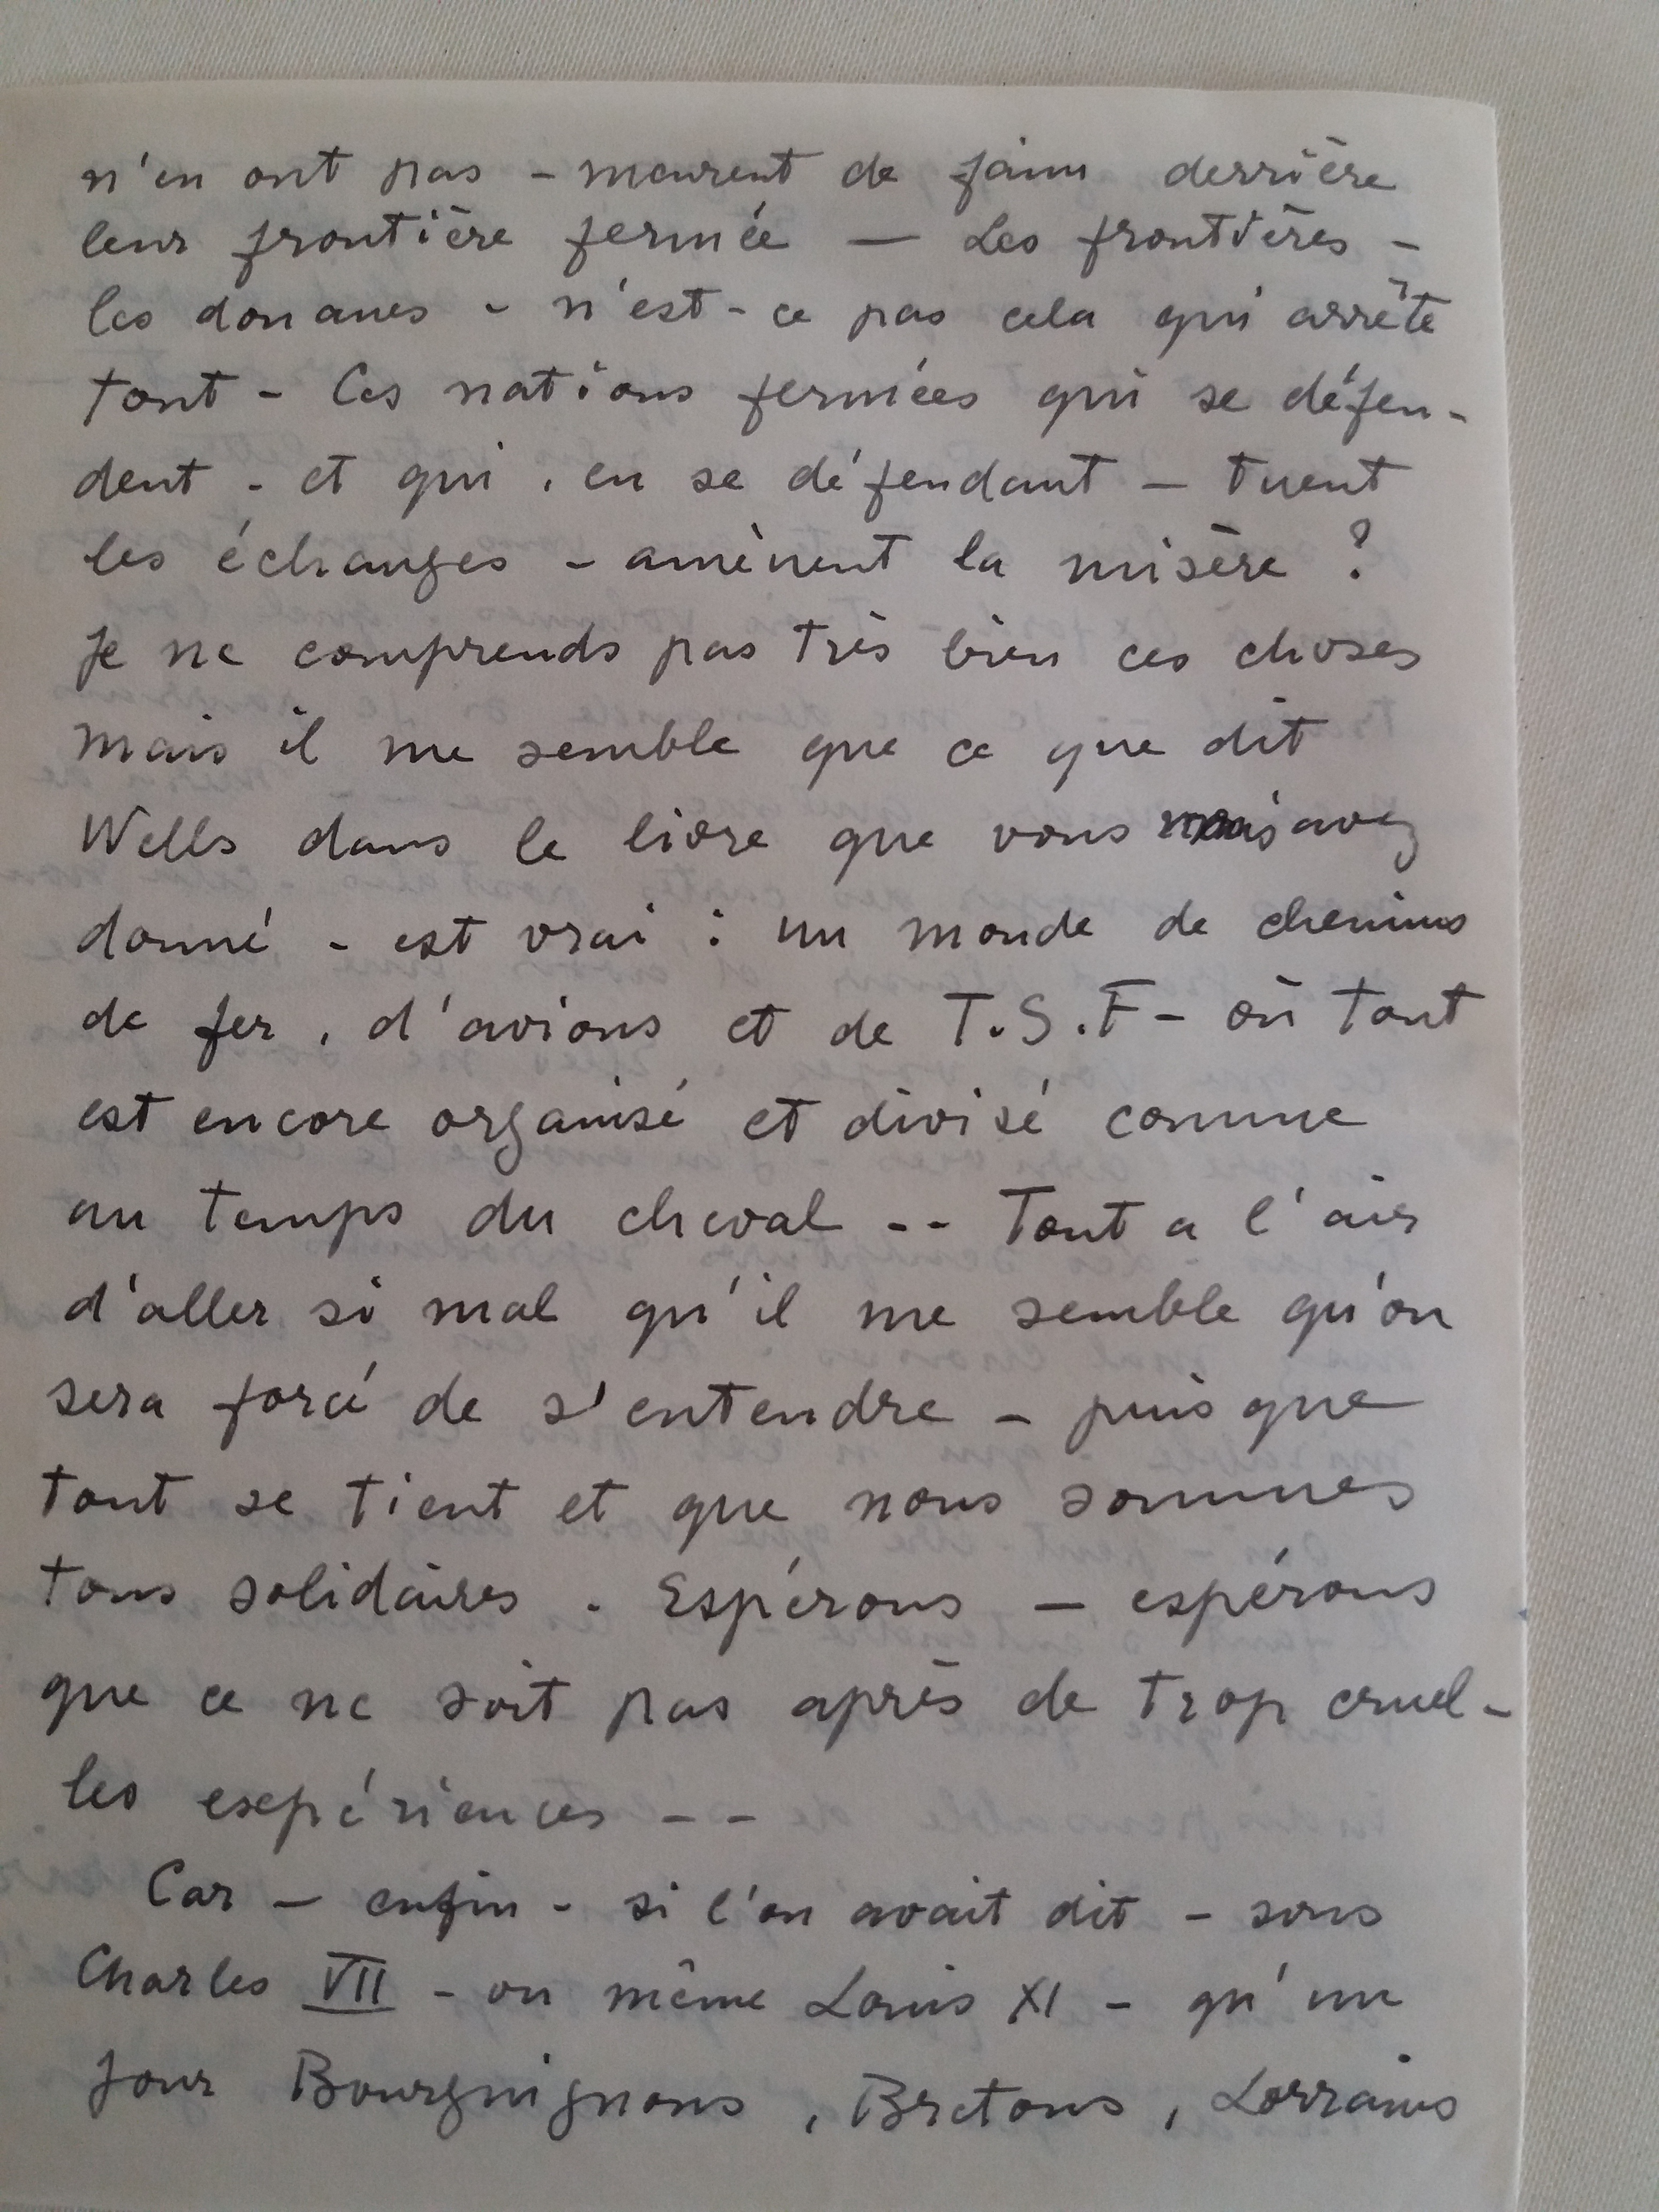 n'en ont pas - meurent de faim derrière
leur frontière fermée — Les frontières -
les douanes - n'est-ce pas cela qui arrête
tout - Ces nations fermées qui se défen-
dent - et qui, en se défendant — tuent
les échanges - amènent la misère ?
Je ne comprends pas très bien ces choses
mais il me semble que ce que dit
Wells dans le livre que vous avez
donné - est vrai : un monde de chemins
de fer, d'avions et de T.S.F - où tout
est encore organisé et divisé comme
au temps du cheval -- Tout a l'air
d'aller si mal qu'il me semble qu'on
sera forcé de s'entendre - puisque
tout se tient et que nous sommes
tous solidaires. Espérons — espérons
que ce ne soit pas après de trop cruel-
les expériences --
Car — enfin - si l'on avait dit - sous
Charles VII - ou même Louis XI - qu'un
jour Bourguignons, Bretons, Lorrains